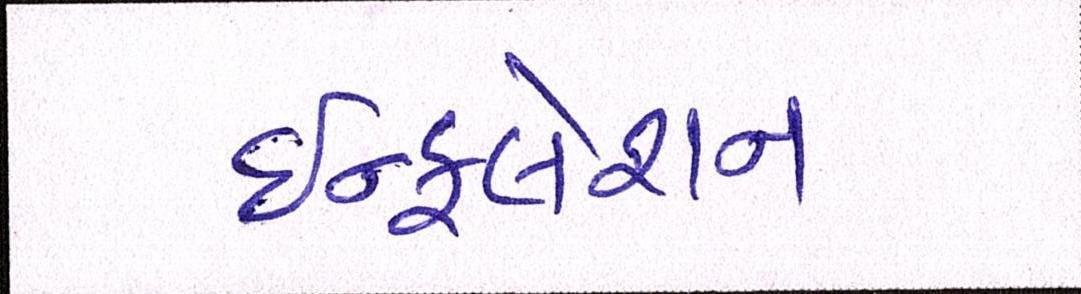 ઈન્ફલેશન